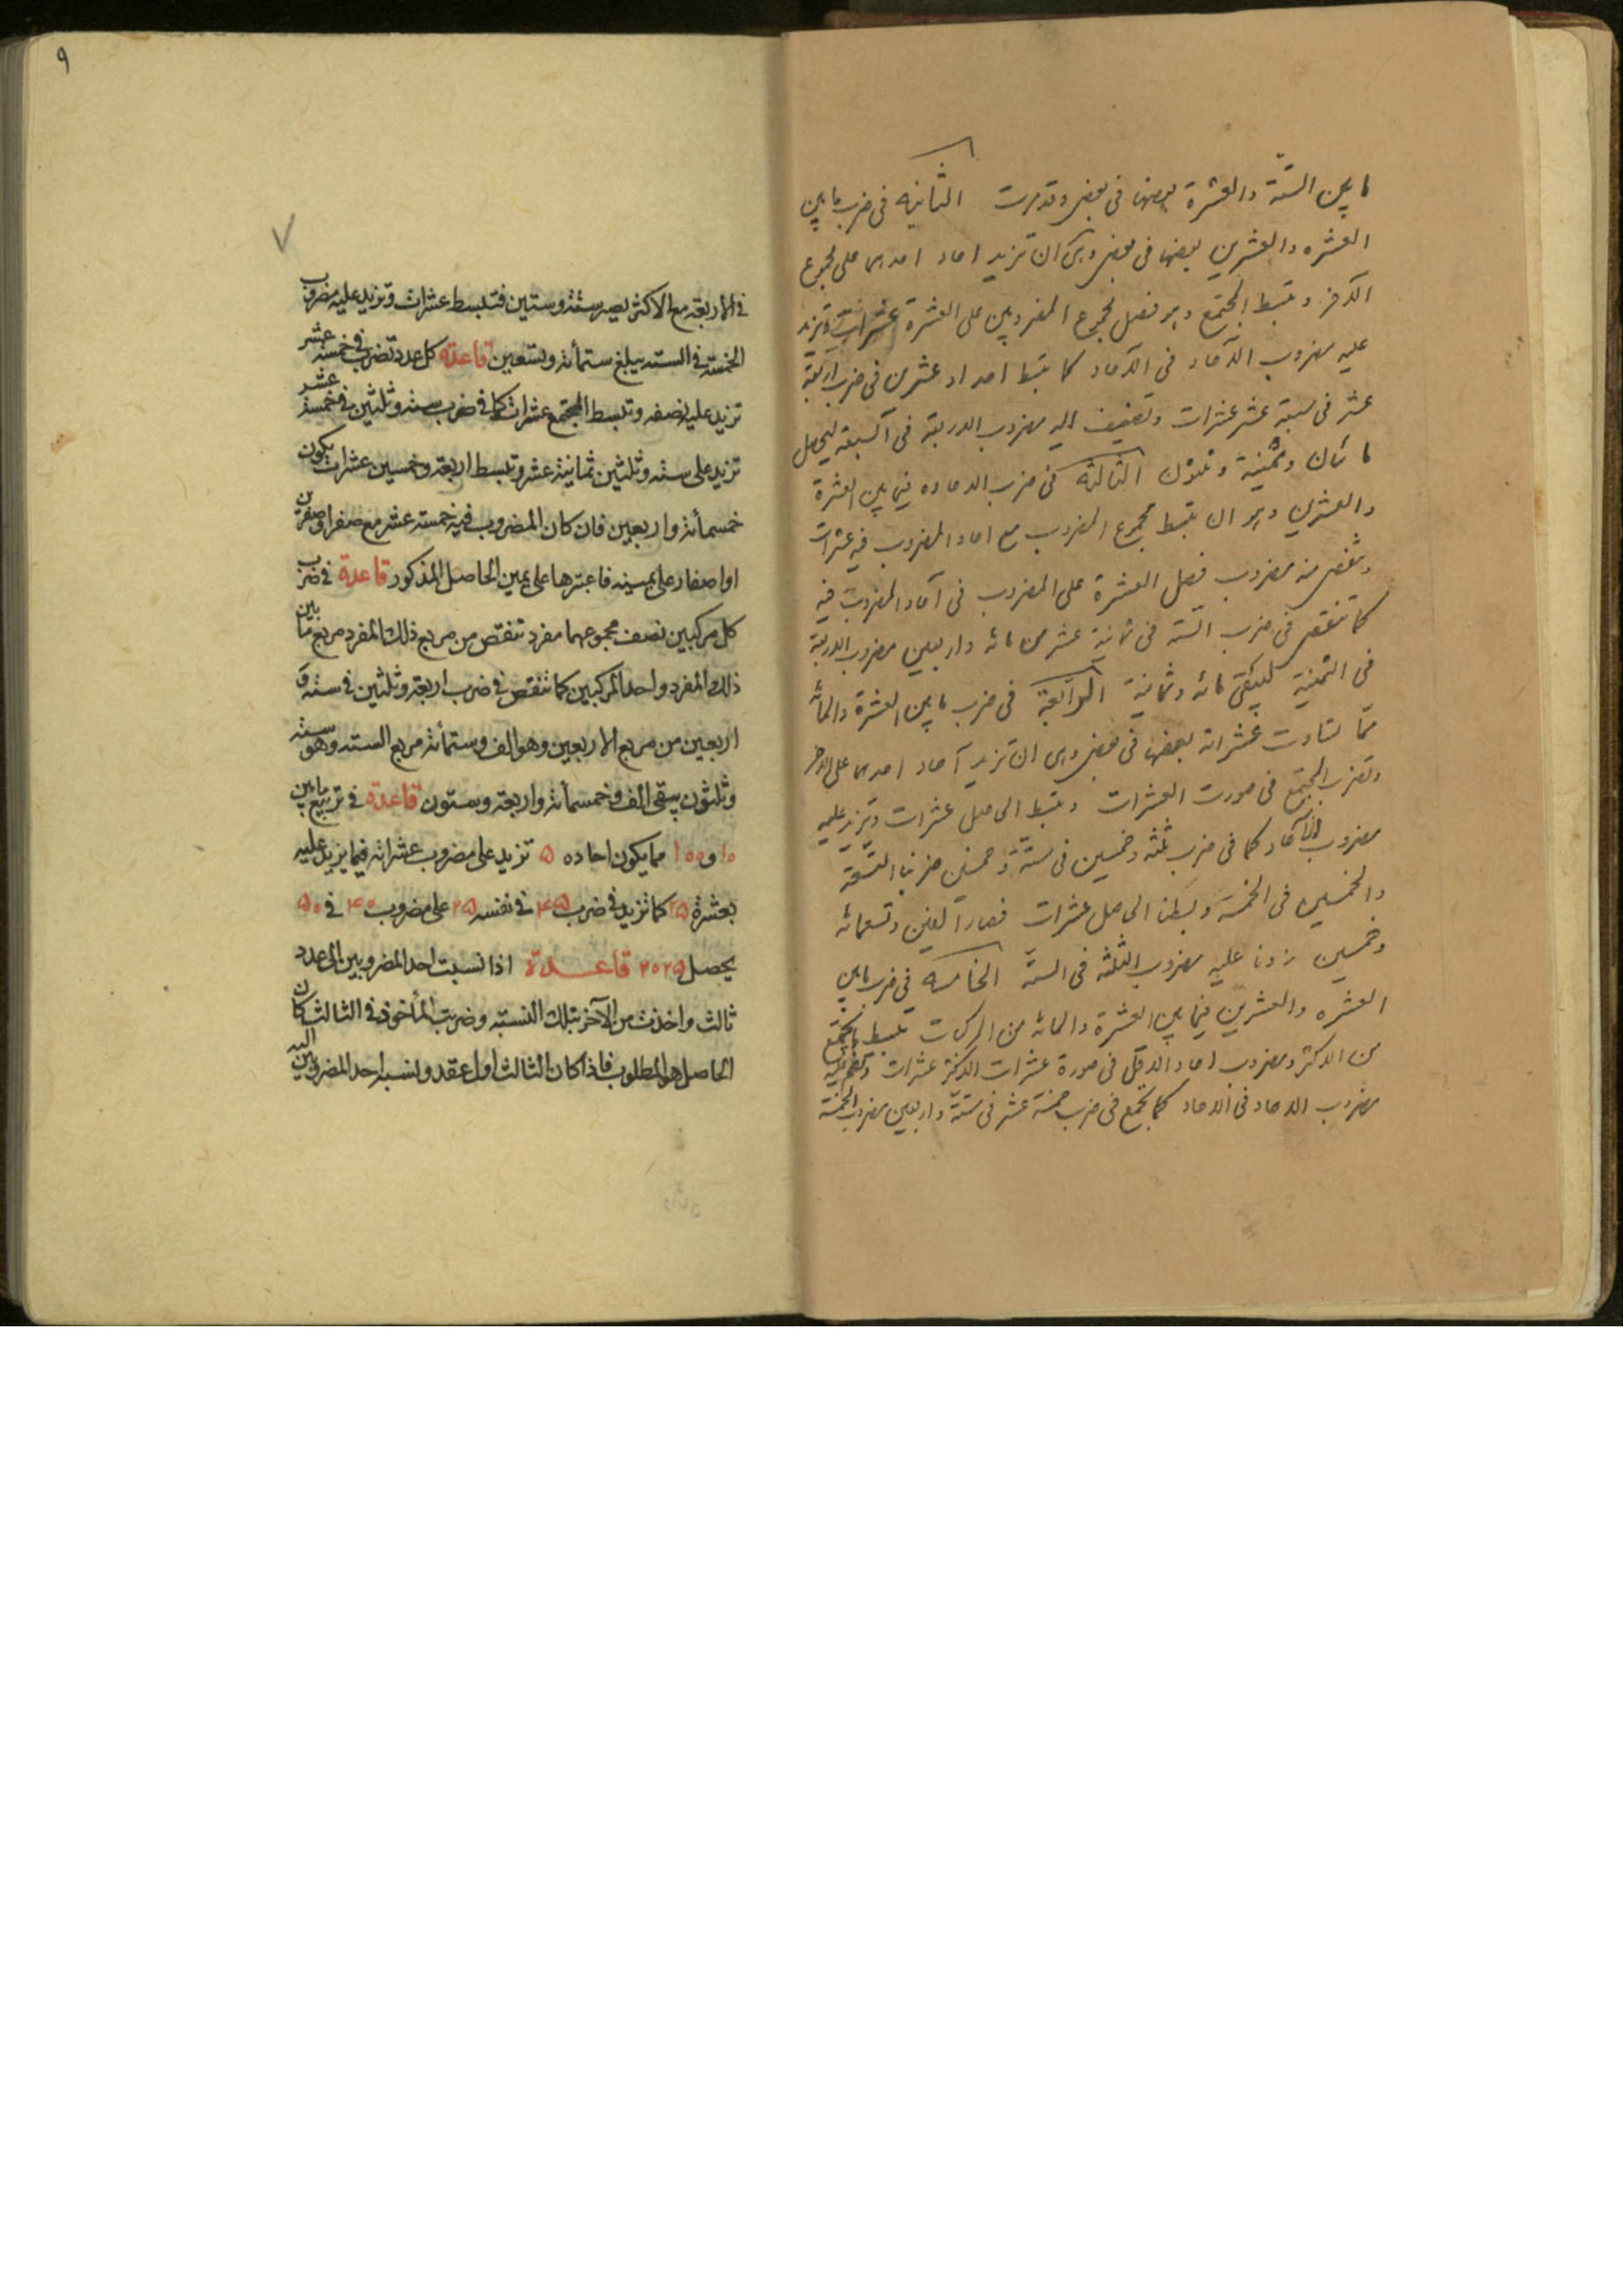 ما بين الستّة والعشرة بعضها فى بعض وقد مرت الثانية فى ضرب ما بين
العشره والعشرين بعضها فى بعض وهى ان تزيد احاد احديهما على مجموع
الآخر وتبسط المجتمع وهو فضل مجموع المضروبين على العشرة عشرات وتزيد
عليه مضروب الآحاد فى الآحاد كما تبسط احداد عشرين فى ضرب اربعة
عشر فى سبعة عشر عشرات وتضيف اليه مضروب الاربعة فى السبعة ليحصل
مائتان وثمنية وثلثون الثالثه فى ضرب الاحاده فيما بين العشرة
والعشرين وهو ان تبسط مجموع المضروب مع احاد المضروب فيه عشرات
وتنقص منه مضروب فضل العشرة على المضروب فى آحاد المضروب فيه
كما تنقص فى ضرب الستة فى ثمانية عشر من مائه واربعين مضروب الاربعة
فى الثمنية ليبقى مائه وثمانية الرابعة فى ضرب ما بين العشرة والمائه
مما تساوت عشراته بعضها فى بعض وهى ان تزيد آحاد احديهما على الآخر
وتضرب المجتمع فى صورت العشرات وتبسط الحاصل عشرات وتزيد عليه
مضروب الآحاد كما فى ضرب ثلثه وخمسين فى ستة وخمسين ضربنا التسعة
والخمسين فى الخمسة وبسطنا الحاصل عشرات فصار الفين وتسعمائه
وخمسين زدنا عليه مضروب الثلثه فى الستّة الخامسه فى ضرب ما بين
العشره والعشرين فيما بين العشرة والمائه من المركبات تبسط المجتمع
من الاكثر ومضروب احاد الاقل فى صورة عشرات الاكثر عشرات وتضم عليه
مضروب الاحاد فى الاحاد كما تجمع فى ضرب خمسة عشر فى ستّة واربعين مضروب الخمسة
٩
فى الاربعة مع الاكثر يصير ستة وستين فتبسط عشرات وتزيد عليه مضروب
الخمسة فى الستة يبلغ ستمائة وتسعين قاعدة كل عدد تضرب فى خمسة عشر
تزيد عليه نصفه وتبسط المجتمع عشرات كما فى ضرب ستة وثلثين فى خمسة عشر
تزيد على ستة وثلثين ثمانية عشر وتبسط اربعة وخمسين عشرات يكون
خمسمائة واربعين فان كان المضروب فيه خمسة عشر مع صفر او صفرين
او اصفار على يمينه فاعتبرها على يمين الحاصل المذكور قاعدة فى ضرب
كل مركبين نصف مجموعهما مفرد تنقص من مربع ذلك المفرد مربع ما بين
ذلك المفرد واحد المركبين كما تنقص فى ضرب اربعة وثلثين فى ستة و
اربعين من مربع الاربعين وهو الف وستمائة مربع الستة وهو ستة
وثلثون يبقى الف وخمسمائة واربعة وستون قاعدة فى تربيع ما بين
١٠ و ١٠٠ مما يكون احاده ۵ تزيد على مضروب عشراته فيما يزيد عليه
بعشرة ٢۵ كما تزيد فى ضرب ۴۵ فى نفسه ٢۵ على مضروب ۴٠ فى ۵٠
يحصل ٢٠٢۵ قاعدة اذا نسبت احد المضروبين الى عدد
ثالث واخذت من الآخر بتلك النسبة وضربت المأخوذ فى الثالث كان
الحاصل هو المطلوب فاذا كان الثالث اول عقد ونسبة احد المضروبين اليه